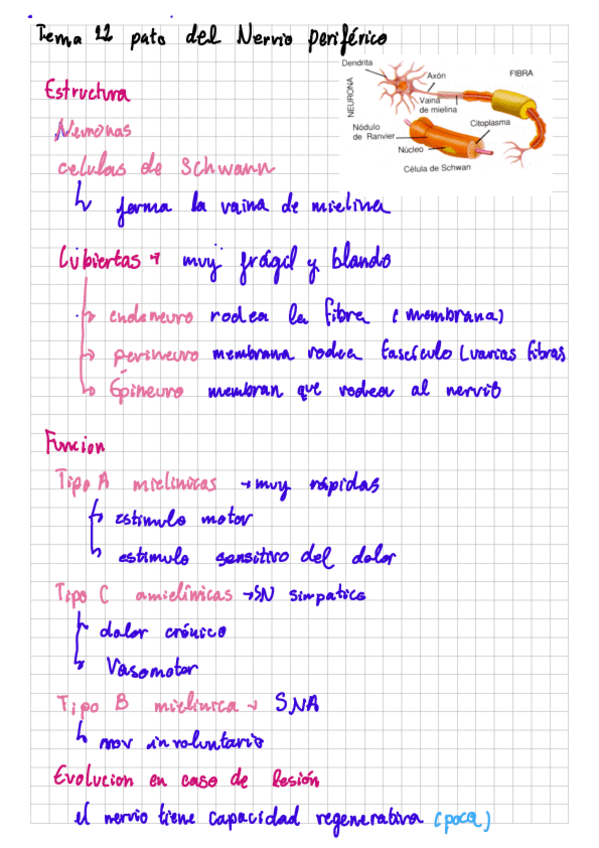 Tema 22 pato del Nervio periférico
Estructura
Neuronas
celulas de Schwann
forma la vaina de mielina
Dendrita
Axón
FIBRA
NEURONA
Vaina
de mielina
Nódulo
de Ranvier
Citoplasma
Núcleo
Célula de Schwan
Cubiertas → muy frágil y blando
endoneuro rodea la fibra (membrana)
perineuro membrana rodea fascículo (varias fibras
Epineuro membran que rodea al nervio
Funcion
Tipo A mielinicas → muy rápidas
Estimulo motor
estimulo sensitivo del dolor
Tipo C amielinicas → SN simpatico
dolor crónico
Vasomotor
Tipo B mielinica → SNA
mov involuntario
Evolucion en caso de lesión
el nervio tiene capacidad regenerativa (poca)